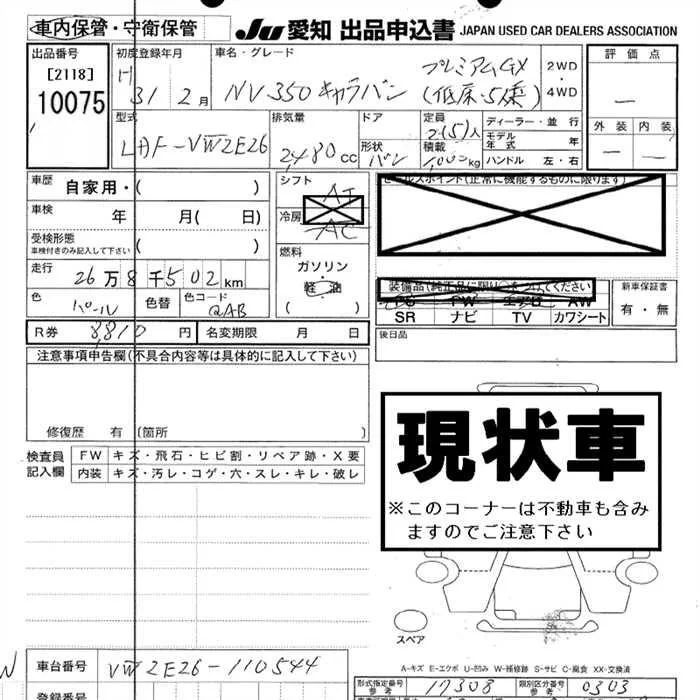 車内保管・守衛保管
JU 愛知 出品申込書 JAPAN USED CAR DEALERS ASSOCIATION
出品番号
[2118]
10075
初度登録年月
H 31 2月
車名・グレード
NV350キャラバン
プレミアムGX
(低床・5人乗)
2WD
・
4WD
評価点
—
外装 内装
— —
型式
LDF-VW2E26
排気量
2,480cc
ドア
形状
バン
定員
2(5)人
積載
kg
ディーラー・並行
モデル年式 年
ハンドル 左・右
車歴 自家用・( )
車検 年 月( 日)
受検形態
車検付きのみ記入して下さい ( )
走行 26万8千502km
色 パール 色替 色コード QAB
シフト
AT
冷房
AC
燃料
ガソリン・
軽油
( )
セールスポイント(正常に機能するものに限ります)
装備品(純正品に限り○をつけてください)
PS PW エアB AW
SR ナビ TV カワシート
新車保証書
有・無
R券 8,810円 名変期限 月 日
後日品
注意事項申告欄(不具合内容等は具体的に記入して下さい)
修復歴 有 (箇所 )
検査員記入欄
FW キズ・飛石・ヒビ割・リペア跡・X要
内装 キズ・汚レ・コゲ・穴・スレ・キレ・破レ
現状車
※このコーナーは不動車も含み
ますのでご注意下さい
スペア
A-キズ E-エクボ U-凹み W-補修跡 S-サビ C-腐食 XX-交換済
車台番号 VW2E26-110544
型式指定番号
参考
17308
類別区分番号
参考
0303
登録番号